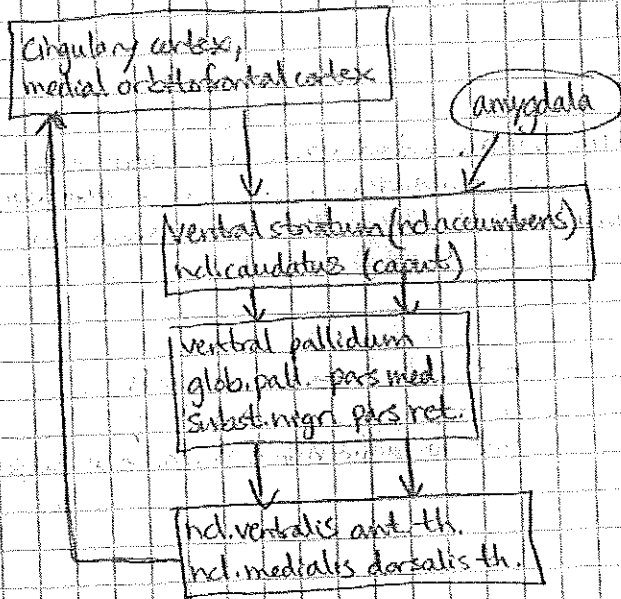 cingulary cortex,
medial orbitofrontal cortex
amygdala
ventral striatum (ncl.accumbens)
ncl.caudatus (caput)
ventral pallidum
glob.pall. pars med.
subst.nigri pars ret.
ncl.ventralis ant.th.
ncl.medialis dorsalis th.